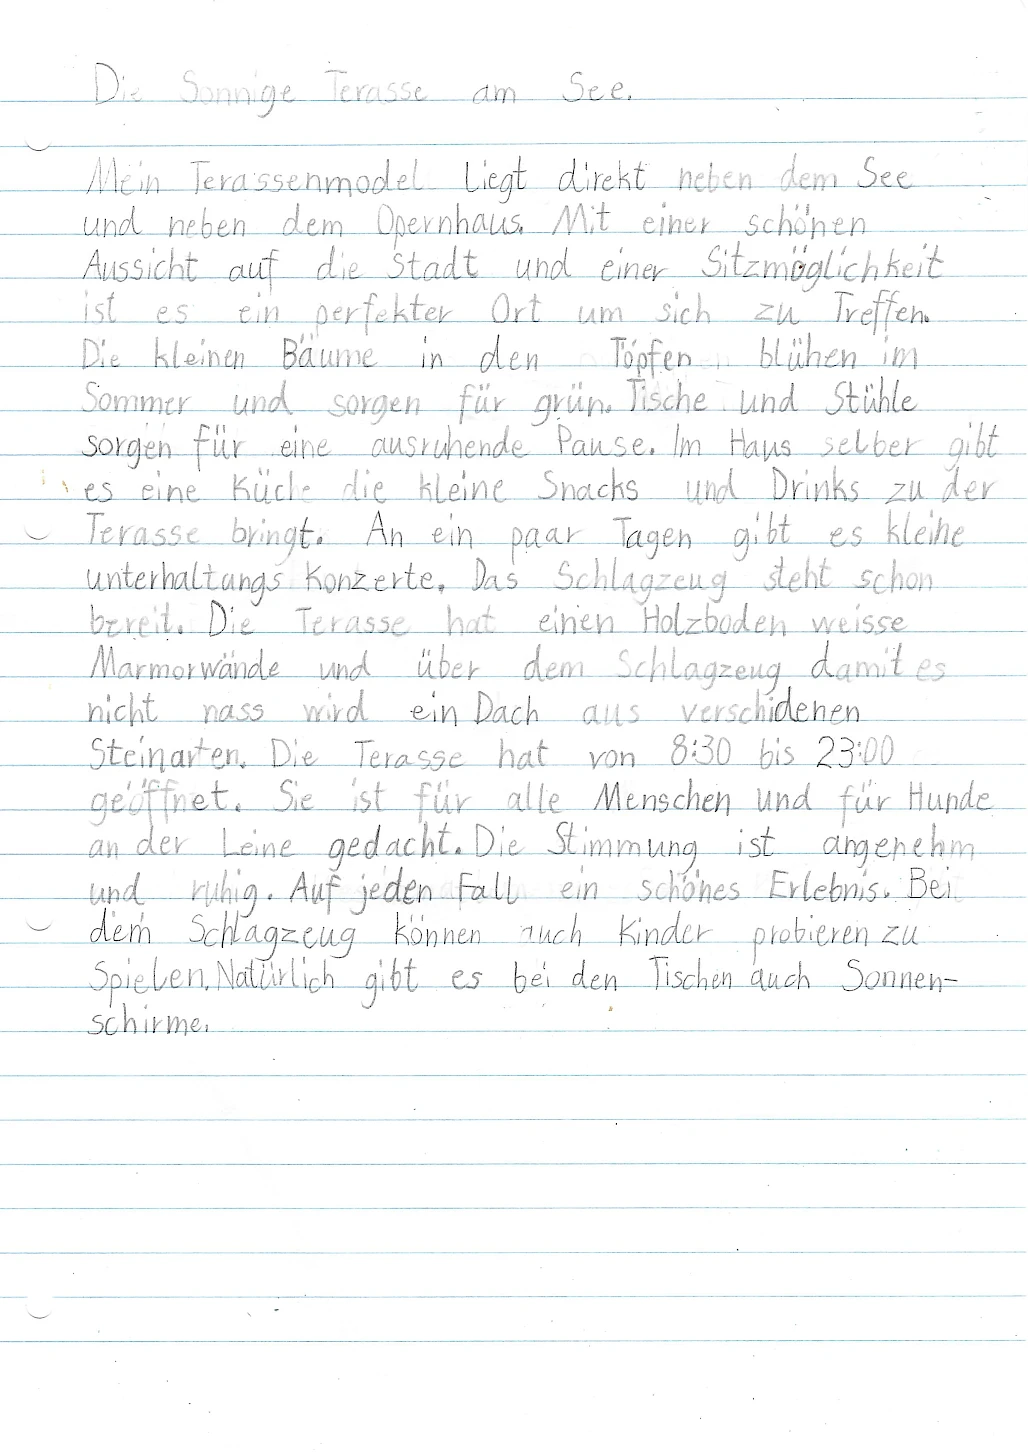 Die Sonnige Terasse am See.
Mein Terassenmodel liegt direkt neben dem See
und neben dem Opernhaus. Mit einer schönen
Aussicht auf die Stadt und einer Sitzmöglichkeit
ist es ein perfekter Ort um sich zu Treffen.
Die kleinen Bäume in den Töpfen blühen im
Sommer und sorgen für grün. Tische und Stühle
sorgen für eine ausruhende Pause. Im Haus selber gibt
es eine Küche die kleine Snacks und Drinks zu der
Terasse bringt. An ein paar Tagen gibt es kleine
unterhaltungs Konzerte. Das Schlagzeug steht schon
bereit. Die Terasse hat einen Holzboden weisse
Marmorwände und über dem Schlagzeug damit es
nicht nass wird ein Dach aus verschidenen
Steinarten. Die Terasse hat von 8:30 bis 23:00
geöffnet. Sie ist für alle Menschen und für Hunde
an der Leine gedacht. Die Stimmung ist angenehm
und ruhig. Auf jeden Fall ein schönes Erlebnis. Bei
dem Schlagzeug können auch Kinder probieren zu
Spielen. Natürlich gibt es bei den Tischen auch Sonnen-
schirme.